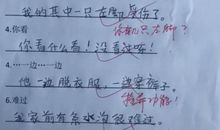 我的其中一只左脚受伤了。
你有几只左脚？
4.你看
你看什么看！没看过啊！
5.一边……一边
他一边脱衣服，一边穿裤子。
6.难过
我家门前有条水沟很难过。